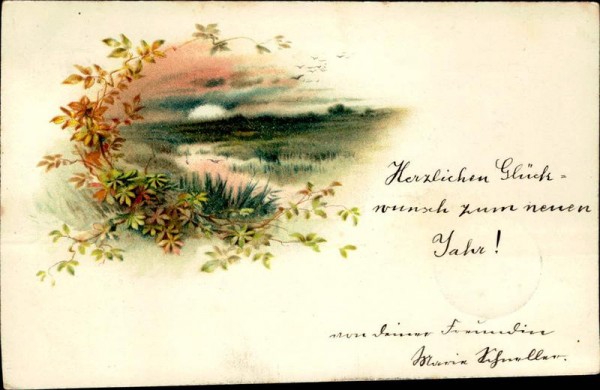 Herzlichen Glück=
wunsch zum neuen
Jahr!
von deiner Freundin
Marie Schneller.